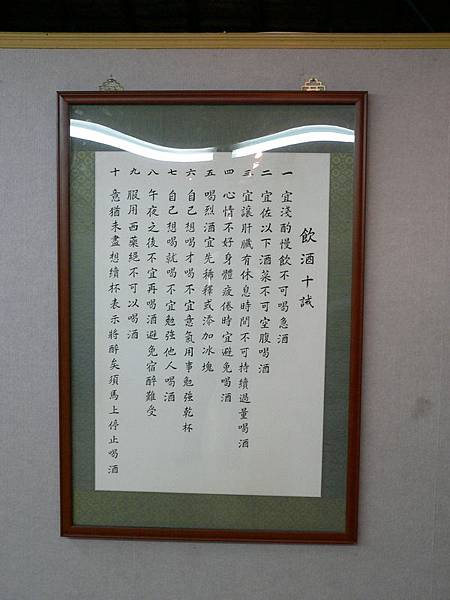 飲酒十誡
一 宜淺酌慢飲不可喝急酒
二 宜佐以下酒菜不可空腹喝酒
三 宜讓肝臟有休息時間不可持續過量喝酒
四 心情不好身體疲倦時宜避免喝酒
五 喝烈酒宜先稀釋或添加冰塊
六 自己想喝才喝不宜意氣用事勉強乾杯
七 自己想喝就喝不宜勉強他人喝酒
八 午夜之後不宜再喝酒避免宿醉難受
九 服用西藥絕不可以喝酒
十 意猶未盡想續杯表示將醉矣須馬上停止喝酒